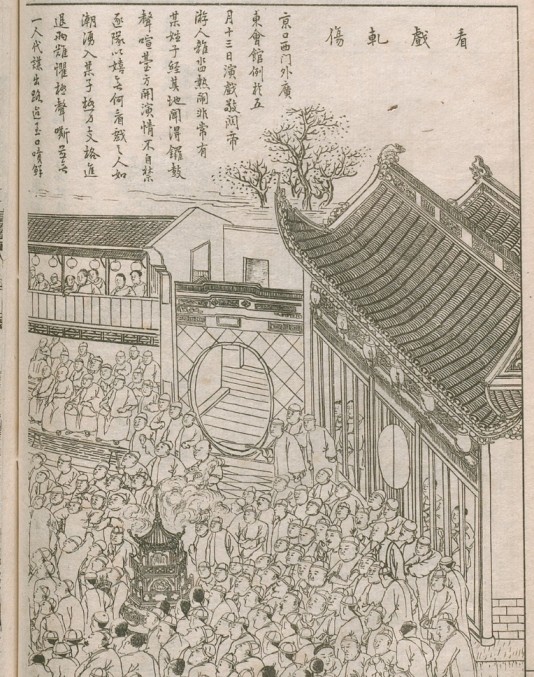 看戲軋傷
京口西門外廣
東會館例於五
月十三日演戲敬關帝
游人雜沓熱鬧非常有
某姓子經其地聞得鑼鼓
聲喧臺方開演情不自禁
逐隊以嬉無何看戲之人如
潮湧入某子極力支格進
退兩難懼極聲嘶
一人代謀出路迨至口噴鮮